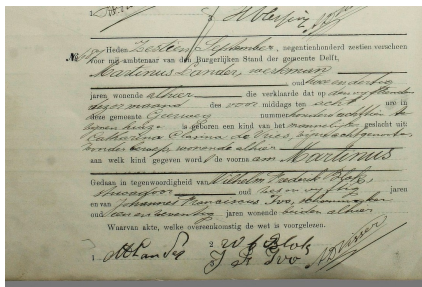 Heden zestien September, negentienhonderd zestien verscheen
voor mij ambtenaar van den Burgerlijken Stand der gemeente Delft,
Martinus Lander, werkman
oud
jaren wonende alhier die verklaarde dat op den vijftienden
dezer maand des voor middags ten acht ure in
deze gemeente nummer
is geboren een kind van het mannelijk geslacht uit:
Catharina Clasina de Vries, zijne echtgenoote
zonder beroep, wonende alhier
aan welk kind gegeven word de voornaam Martinus
Gedaan in tegenwoordigheid van Wilhelm Blok,
oud zes en vijftig jaren
en van Johannes Franciscus Ivo, schoenmaker
oud en zeventig jaren wonende beiden alhier
Waarvan akte, welke overeenkomstig de wet is voorgelezen.
1. 2. W F Blok
J F Ivo